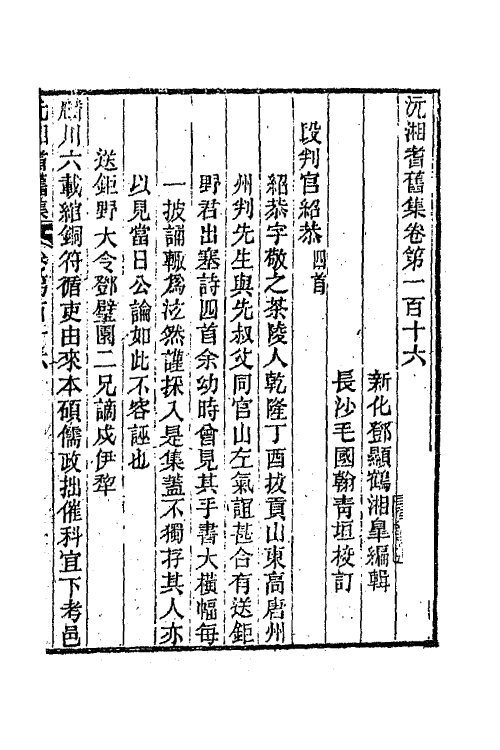 沅湘耆舊集卷第一百十六
新化鄧顯鶴湘臯編輯
長沙毛國翰青垣校訂
段判官紹恭四首
紹恭字敬之茶陵人乾隆丁酉拔貢山東高唐州
州判先生與先叔父同官山左氣誼甚合有送鉅
野君出塞詩四首余幼時曾見其手書大橫幅每
一披誦輒爲泫然謹採入是集蓋不獨存其人亦
以見當日公論如此不容誣也
送鉅野大令鄧璧園二兄謫戍伊犂
川六載綰銅符循吏由來本碩儒政拙催科宜下考邑